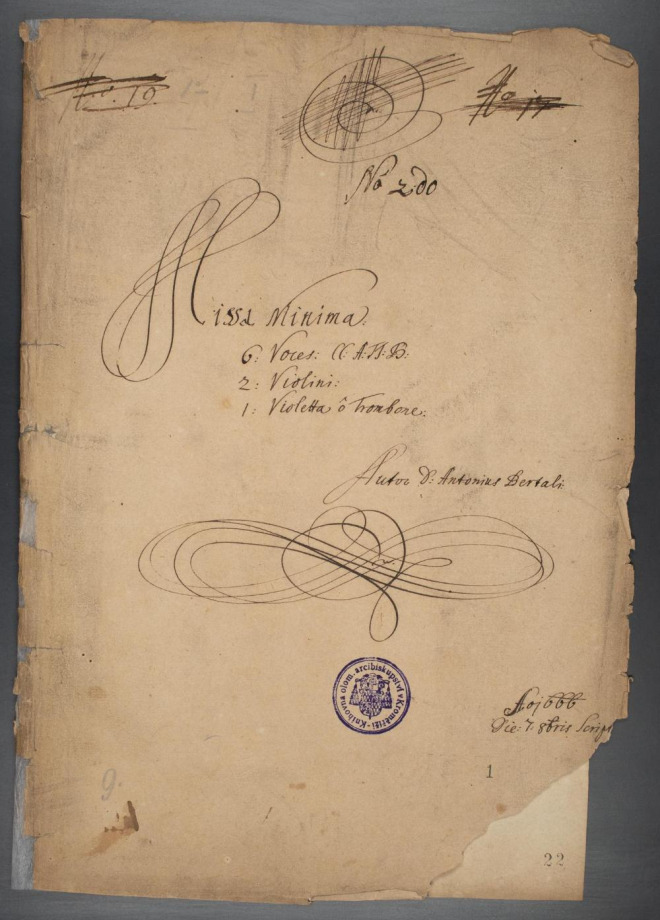 No. 19.
No 17
No 2do
Missa Minima.
6: Voces: CC. A. TT. B:
2: Violini:
1: Violetta ô Trombone:
Autore D: Antonius Bertali
Knihovna olom. arcibiskupství v Kroměříži
Ao 1666
Die: 7. 8bris Script
1
9.
22